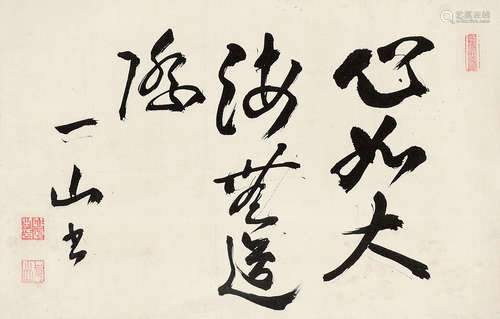 心如大
海無邊
際
一山書